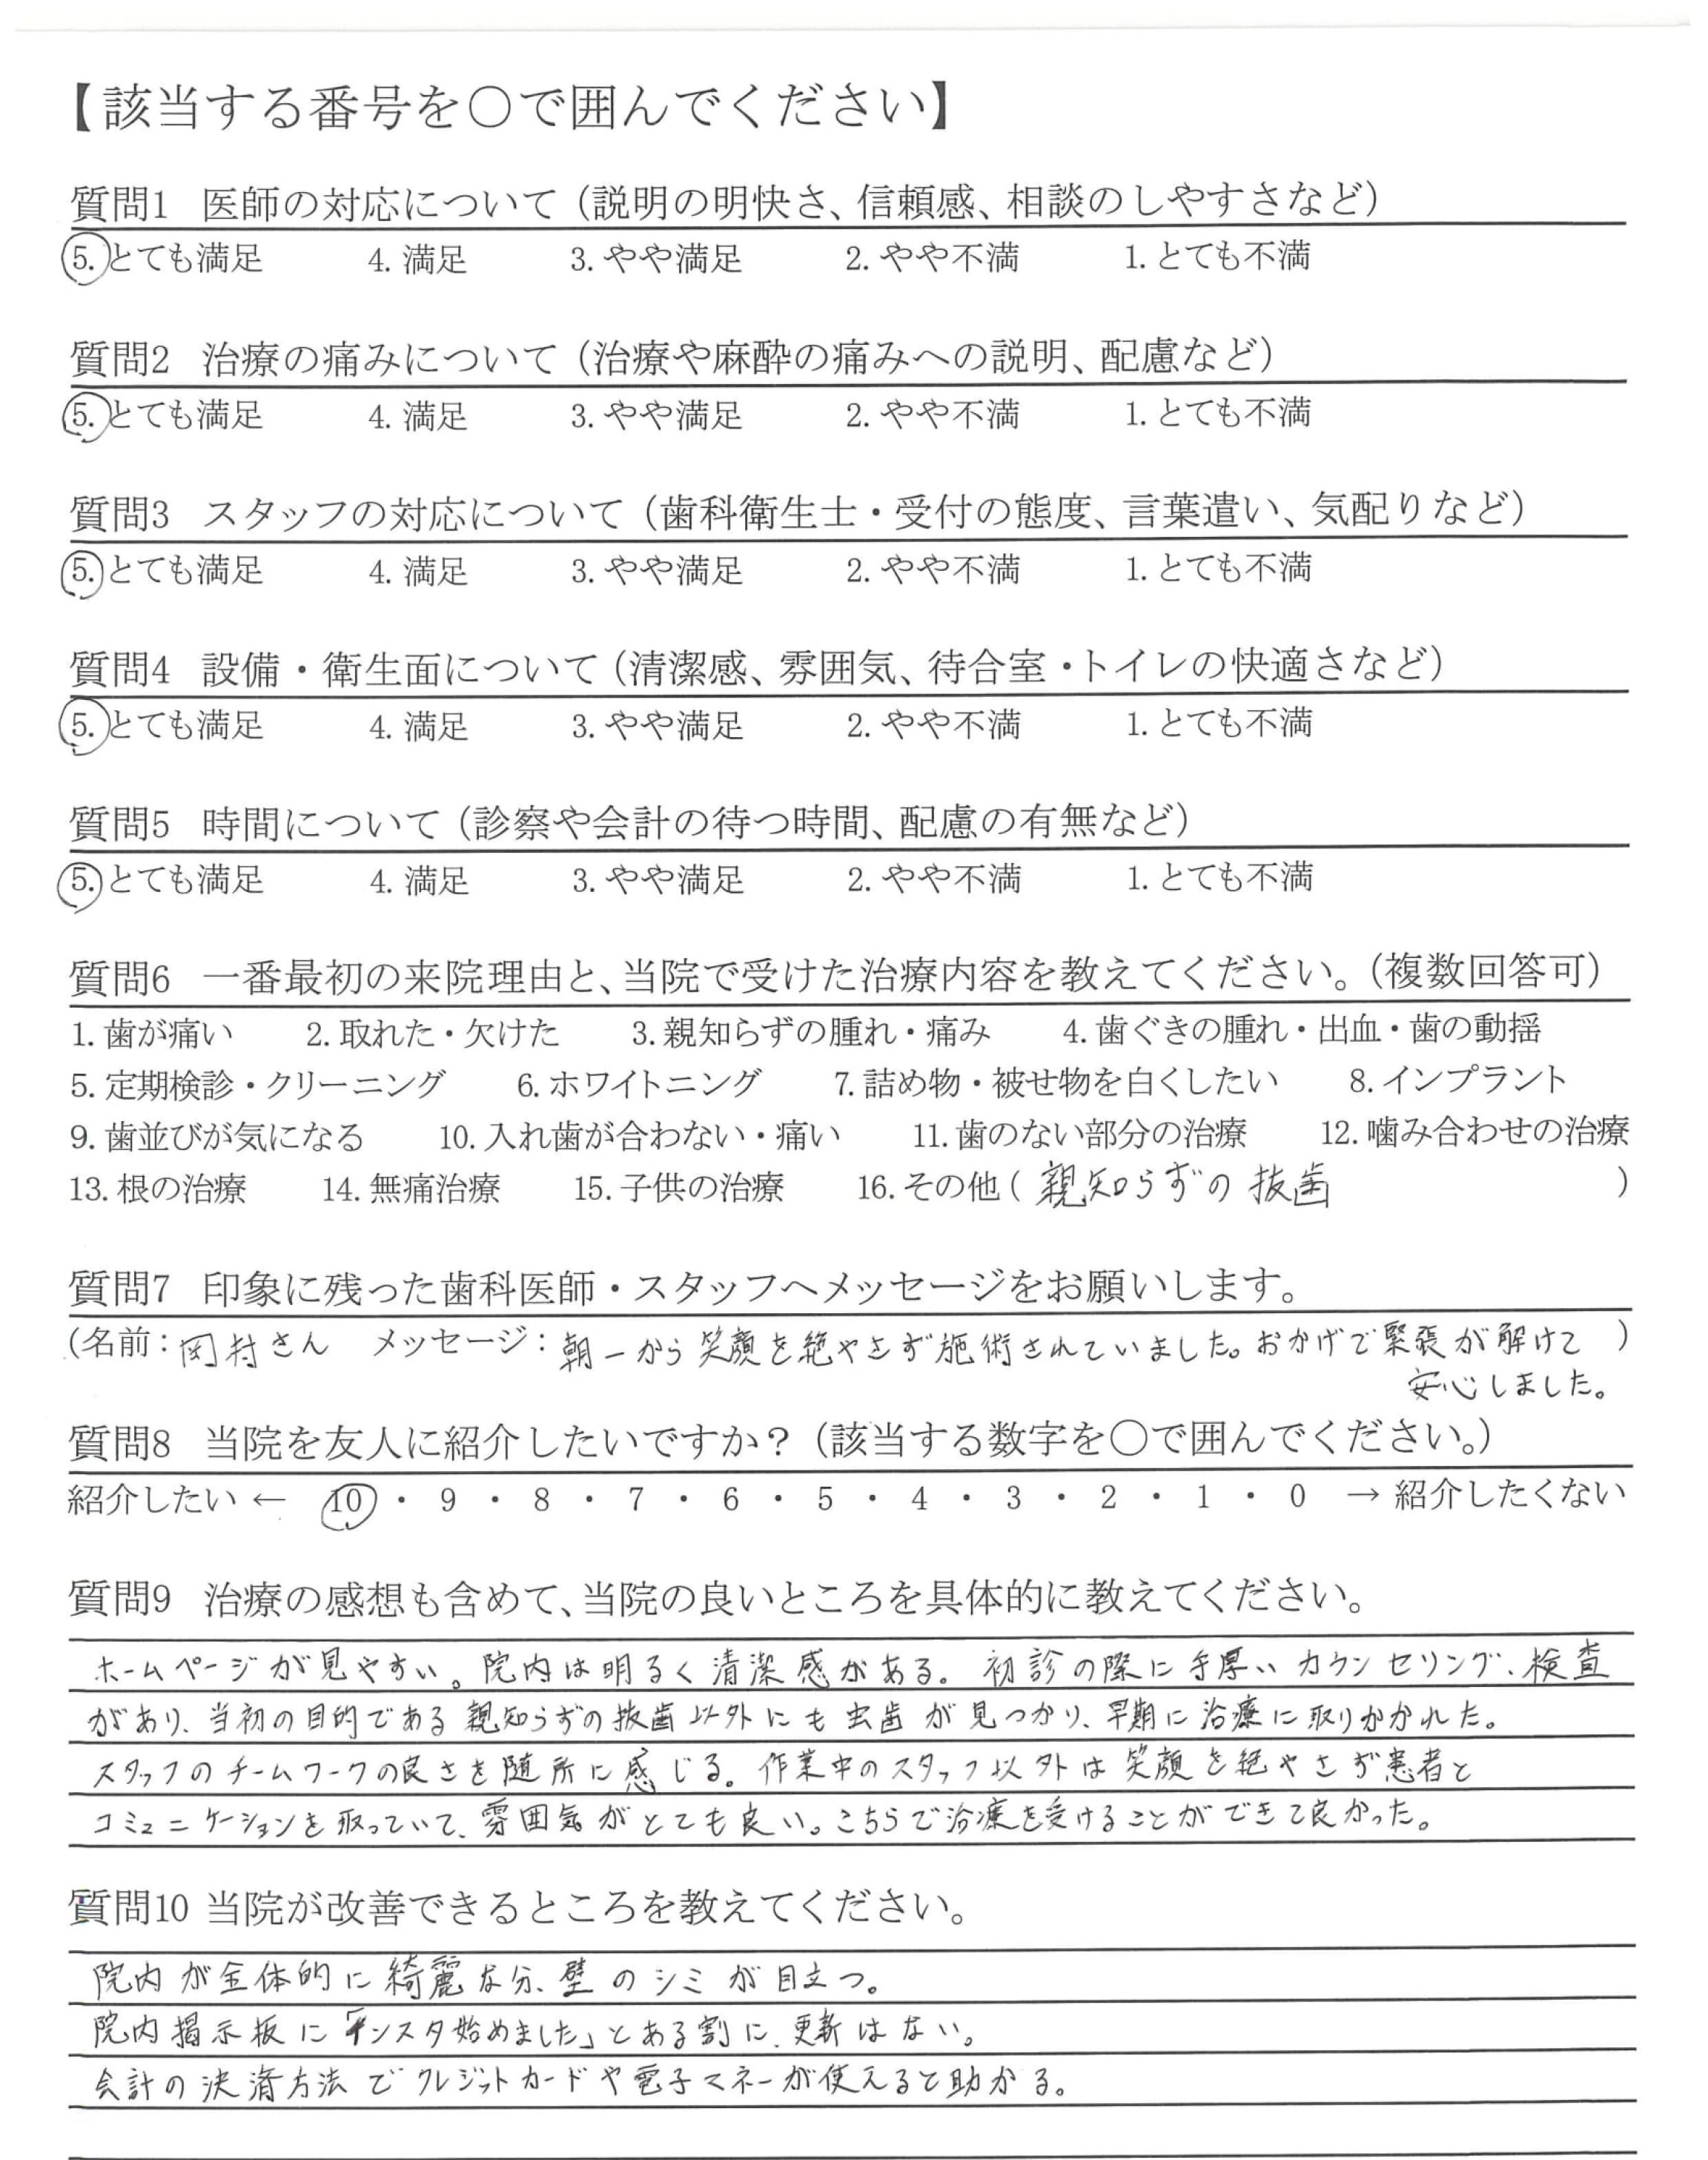 【該当する番号を○で囲んでください】
質問1 医師の対応について（説明の明快さ、信頼感、相談のしやすさなど）
5. とても満足 4. 満足 3. やや満足 2. やや不満 1. とても不満
質問2 治療の痛みについて（治療や麻酔の痛みへの説明、配慮など）
5. とても満足 4. 満足 3. やや満足 2. やや不満 1. とても不満
質問3 スタッフの対応について（歯科衛生士・受付の態度、言葉遣い、気配りなど）
5. とても満足 4. 満足 3. やや満足 2. やや不満 1. とても不満
質問4 設備・衛生面について（清潔感、雰囲気、待合室・トイレの快適さなど）
5. とても満足 4. 満足 3. やや満足 2. やや不満 1. とても不満
質問5 時間について（診察や会計の待つ時間、配慮の有無など）
5. とても満足 4. 満足 3. やや満足 2. やや不満 1. とても不満
質問6 一番最初の来院理由と、当院で受けた治療内容を教えてください。（複数回答可）
1. 歯が痛い 2. 取れた・欠けた 3. 親知らずの腫れ・痛み 4. 歯ぐきの腫れ・出血・歯の動揺
5. 定期検診・クリーニング 6. ホワイトニング 7. 詰め物・被せ物を白くしたい 8. インプラント
9. 歯並びが気になる 10. 入れ歯が合わない・痛い 11. 歯のない部分の治療 12. 噛み合わせの治療
13. 根の治療 14. 無痛治療 15. 子供の治療 16. その他（ 親知らずの抜歯 ）
質問7 印象に残った歯科医師・スタッフへメッセージをお願いします。
（名前：岡村さん メッセージ：朝一から笑顔を絶やさず施術されていました。おかげで緊張が解けて ）
安心しました。
質問8 当院を友人に紹介したいですか？（該当する数字を○で囲んでください。）
紹介したい ← 10 ・ 9 ・ 8 ・ 7 ・ 6 ・ 5 ・ 4 ・ 3 ・ 2 ・ 1 ・ 0 → 紹介したくない
質問9 治療の感想も含めて、当院の良いところを具体的に教えてください。
ホームページが見やすい。院内は明るく清潔感がある。初診の際に手厚いカウンセリング、検査
があり、当初の目的である親知らずの抜歯以外にも虫歯が見つかり、早期に治療に取りかかれた。
スタッフのチームワークの良さを随所に感じる。作業中のスタッフ以外は笑顔を絶やさず患者と
コミュニケーションを取っていて、雰囲気がとても良い。こちらで治療を受けることができて良かった。
質問10 当院が改善できるところを教えてください。
院内が全体的に綺麗な分、壁のシミが目立つ。
院内掲示板に「インスタ始めました」とある割に、更新はない。
会計の決済方法でクレジットカードや電子マネーが使えると助かる。